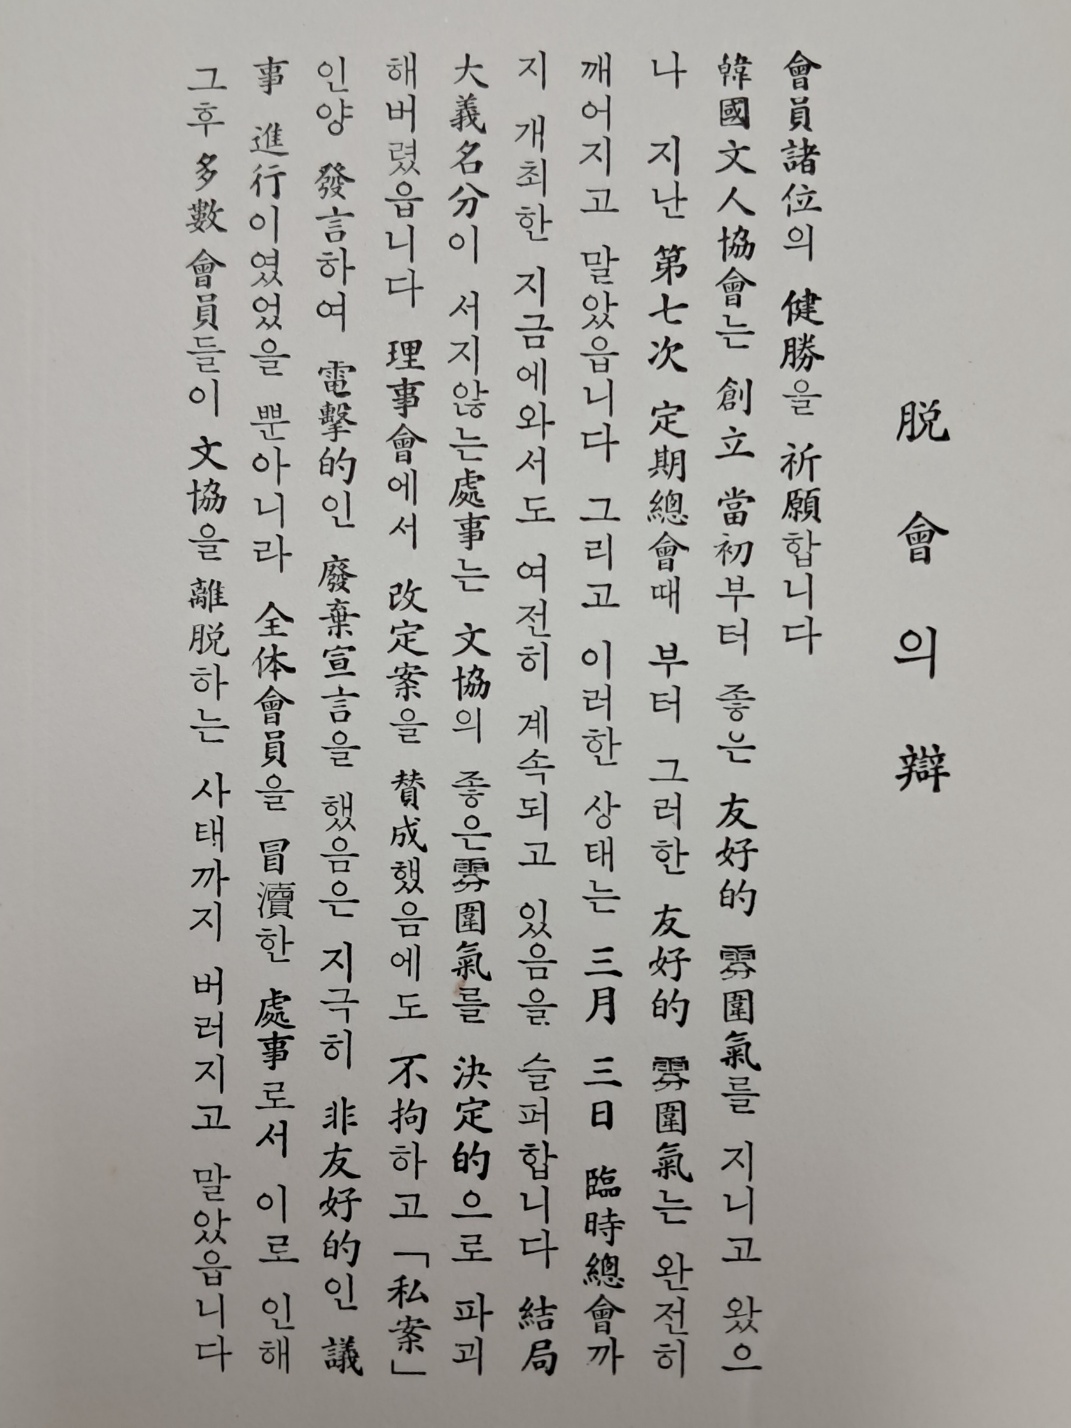 脱會의 辯
會員諸位의 健勝을 祈願합니다
韓國文人協會는 創立 當初부터 좋은 友好的 雰圍氣를 지니고 왔으
나 지난 第七次 定期總會때 부터 그러한 友好的 雰圍氣는 완전히
깨어지고 말았읍니다 그리고 이러한 상태는 三月 三日 臨時總會까
지 개최한 지금에와서도 여전히 계속되고 있음을 슬퍼합니다 結局
大義名分이 서지않는處事는 文協의 좋은雰圍氣를 決定的으로 파괴
해버렸읍니다 理事會에서 改定案을 賛成했음에도 不拘하고「私案」
인양 發言하여 電擊的인 廢棄宣言을 했음은 지극히 非友好的인 議
事 進行이였었을 뿐아니라 全体會員을 冒瀆한 處事로서 이로 인해
그후 多數會員들이 文協을 離脱하는 사태까지 버러지고 말았읍니다